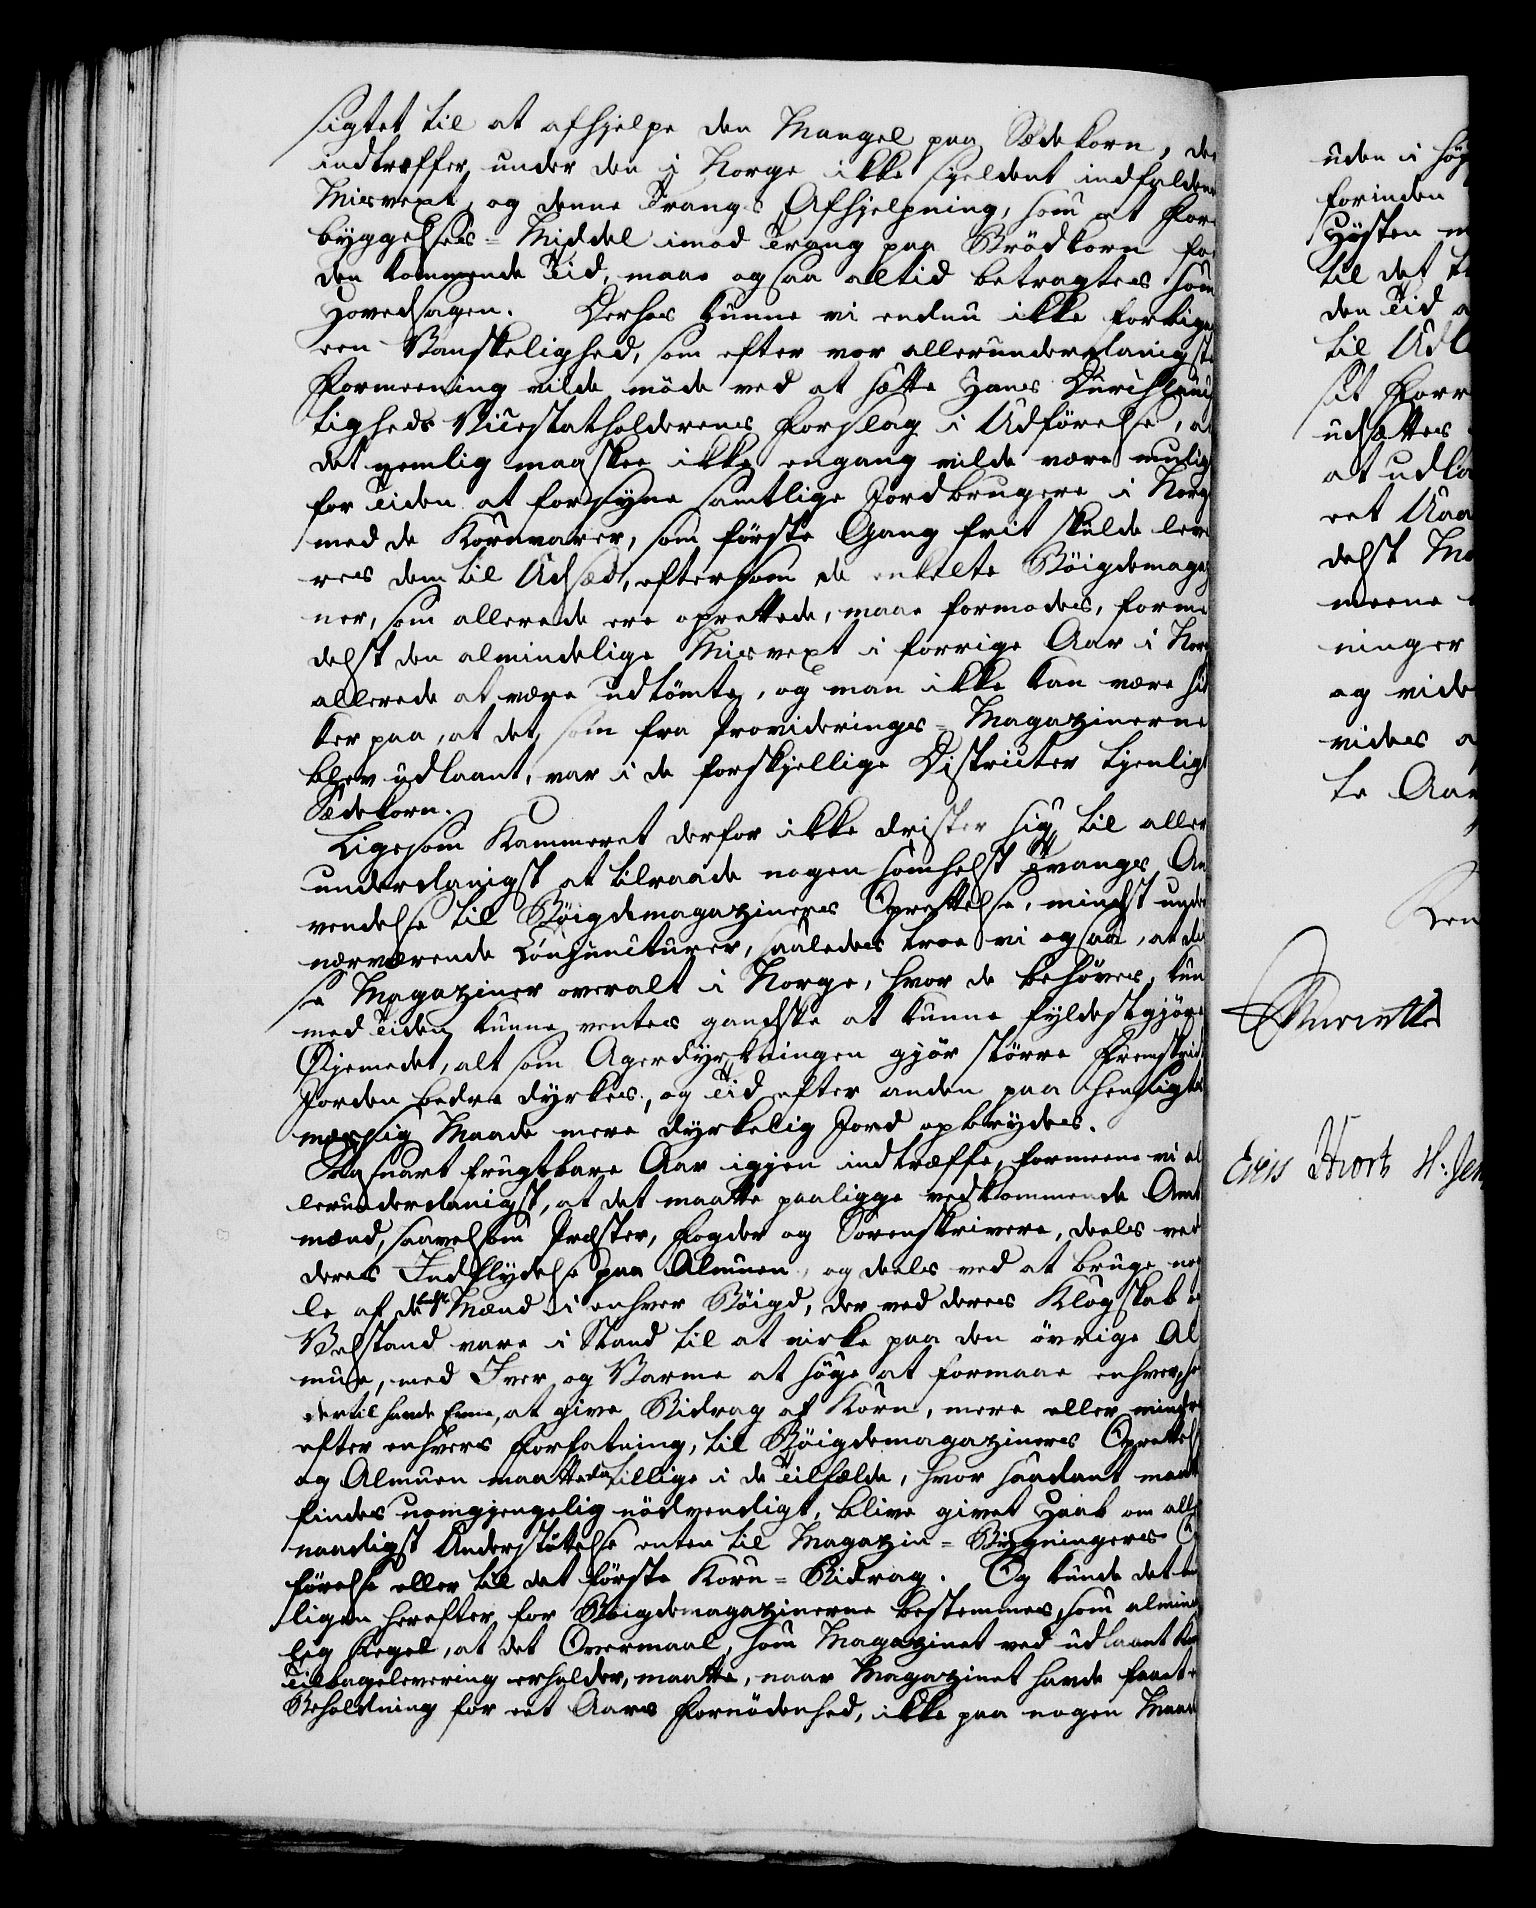 sigtet til at afhjelpe den Mangel paa Sædekorn, der
indtræffer under den i Norge ikke sjeldent indfaldende
Misvext, og denne Trangs Afhjelpning, som et Fore-
byggelses-Middel imod Trang paa Brödkorn for
den kommende Tid, maae ogsaa altid betragtes som
Hovedsagen. Derhos kunne vi endnu ikke fortige
een Vanskelighed, som efter vor allerunderdanigste
Formeening vilde möde ved at sætte Hans Durchlauch
tigheds Vicestatholderens Forslag i Udförelse, at
det nemlig maaskee ikke engang vilde være mulig
for Tiden at forsyne samtlige Jordbrugere i Norge
med de Kornvarer, som förste Gang frit skulde leve
res dem til Udsæd, eftersom de enkelte Böigdemagazi
ner, som allerede ere oprettede, maae formodes, forme
delst den almindelige Misvext i forrige Aar i Norge
allerede at være udtömte, og man ikke kan være sik
ker paa, at det, som fra Provideringes-Magazinerne
blev udlaant, var i de forskjellige Districter tjenligt
Sædekorn.
Ligesom Kammeret derfor ikke drister sig til aller
underdanigst at tilraade nogen somhelst Tvangs An
vendelse til Böigdemagaziners Oprettelse, mindst under
nærværende Conjuncturer, saaledes troe vi ogsaa, at dis
se Magaziner overalt i Norge, hvor de behöves, kun
med Tiden kunne ventes gandske at kunne fyldestgjöre
Öjemedet, alt som Agerdyrkningen gjör större Fremskridt
Jorden bedre dyrkes, og Tid efter anden paa hensigts
mæssig Maade mere dyrkelig Jord opbrydes.
Saasnart frugtbare Aar igjen indtræffe, formeene vi al
lerunderdanigst, at det maatte paaligge vedkommende Amt
mænd, saavelsom Præster, Fogder og Sorenskrivere, deels ved
deres Indflydelse paa Almuen, og deels ved at bruge nog
le af de Mænd i enhver Böigd, der ved deres Klogskab og
Velstand vare i Stand til at virke paa den övrige Al
mue, med Iver og Varme at söge at formaae enhver, som
dertil havde Evne, at give Bidrag af Korn, mere eller mindre
efter enhvers Forfatning, til Böigdemagaziners Oprettelse
og Almuen maatte da tillige i de Tilfælde, hvor saadant maatte
findes uomgjengelig nödvendigt, blive givet Haab om aller
naadigst Understöttelse enten til Magazin-Bygningers Op
förelse eller til det förste Korn-Bidrag. Og kunde det en
ligen herefter for Böigdemagazinerne bestemmes, som alminde
lig Regel, at det Overmaal, som Magazinet ved udlaant Korns
Tilbagelevering erholder, maatte, naar Magazinet havde faaet en
Beholdning for eet Aars Fornödenhed, ikke paa nogen Maade
uden i
forinden
Hösten
til det
den Tid
til
sit
udsættes
at
eet
delst
meene
ninger
og vide
vides
te Aar
Ren
Eeis Hvort H. Jen